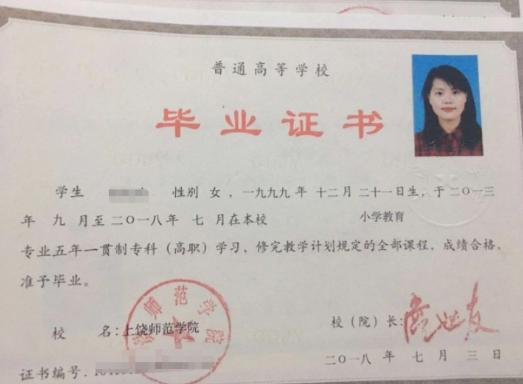 普通高等学校
毕业证书
学生 性别 女，一九九九年 十二月 二十一日生，于二〇一三
年 九 月至二〇一八年 七 月在本校 小学教育
专业五年一贯制专科（高职）学习，修完教学计划规定的全部课程，成绩合格，
准予毕业。
校 名：上饶师范学院 校（院）长：
二〇一八年 七 月 三 日
证书编号：
师范学院